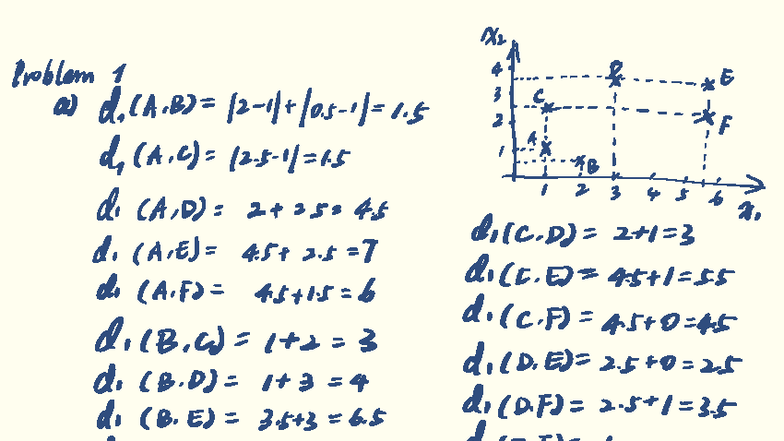 Problem 1
a) d₁(A,B) = |2-1|+|0.5-1| = 1.5
d₁(A,C) = |2.5-1| = 1.5
d₁(A,D) = 2+2.5 = 4.5
d₁(A,E) = 4.5+2.5 = 7
d₁(A,F) = 4.5+1.5 = 6
d₁(B,C) = 1+2 = 3
d₁(B.D) = 1+3 = 4
d₁(B.E) = 3.5+3 = 6.5
x₂
4
3
2
1
D
E
C
F
A
B
1 2 3 4 5 6
x₁
d₁(C.D) = 2+1 = 3
d₁(C.E) = 4.5+1 = 5.5
d₁(C.F) = 4.5+0 = 4.5
d₁(D.E) = 2.5+0 = 2.5
d₁(D.F) = 2.5+1 = 3.5